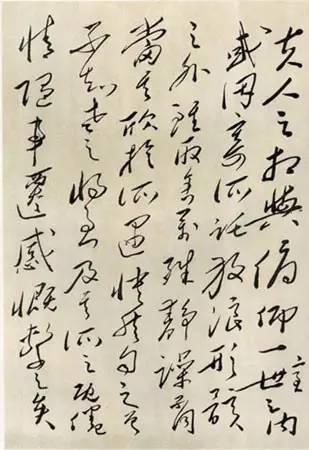 夫人之相與俯仰一世之內
或因寄所託放浪形骸
之外雖取舍萬殊靜躁不同
當其欣於所遇快然自足曾
不知老之將至及其所之既倦
情隨事遷感慨繫之矣